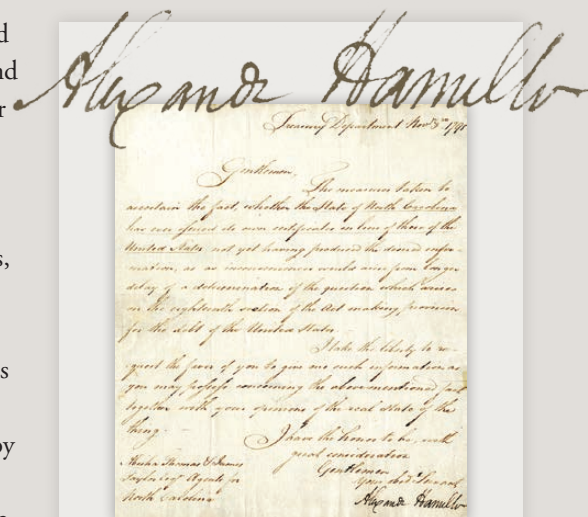 Alexandr Hamilto
Treasury Department Nov 3rd 1791
Gentlemen,
The measures taken to
ascertain the fact, whether the State of North Carolina
has ever issued its own certificates in lieu of those of the
United States, not yet having produced the desired infor-
mation, as an inconvenience would arise from longer
delay of a determination of the question which arises
in the eighteenth section of the Act making provision
for the debt of the United States.
I take the liberty to re-
quest the favor of you to give me such information as
you may possess concerning the abovementioned fact
together with your opinions of the real State of the
thing.
I have the honor to be, with
great consideration
Gentlemen
Your obed Servant
Alexandr Hamilto
Abisha Thomas & James
Taylor Esqrs Agents for
North Carolina
d
nd
r
s,
s
by